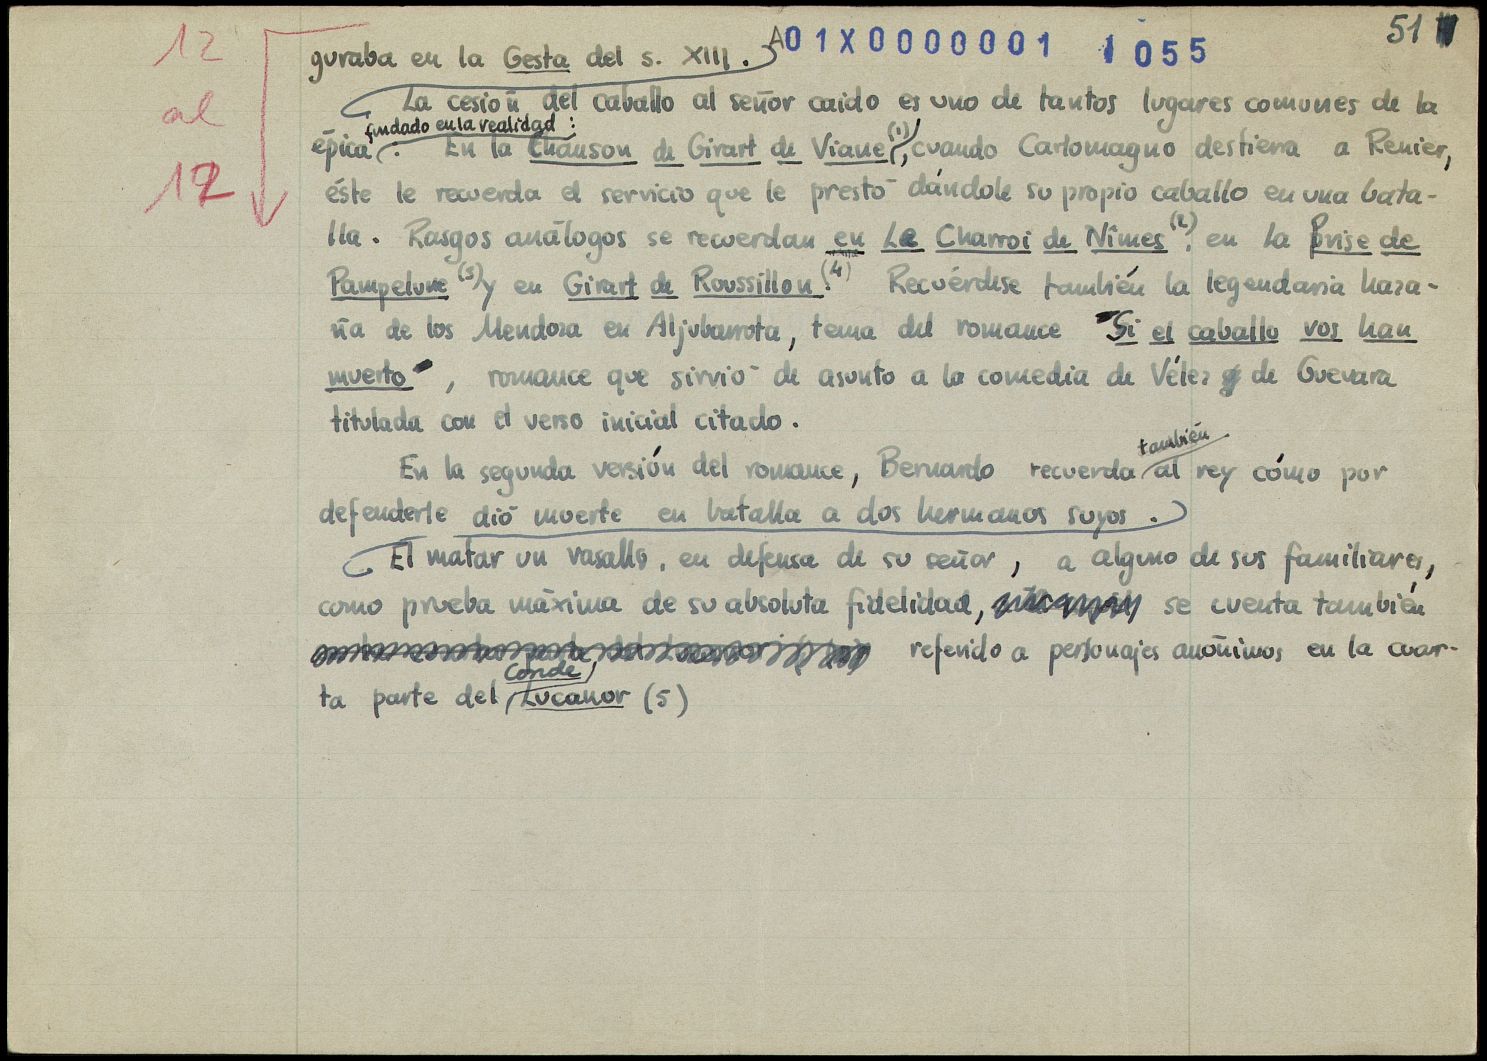 12
al
12
A01X0000001 1055
51
guraba en la Gesta del s. XIII.
La cesión del caballo al señor caido es uno de tantos lugares comunes de la
fundado en la realidad:
épica. En la Chanson de Girart de Viane (1), cuando Carlomagno destierra a Renier,
éste le recuerda el servicio que le prestó dándole su propio caballo en una bata-
lla. Rasgos análogos se recuerdan en Le Charroi de Nîmes (2), en la Prise de
Pampelune (3) y en Girart de Roussillon (4). Recuérdese también la legendaria haza-
ña de los Mendoza en Aljubarrota, tema del romance "Si el caballo vos han
muerto", romance que sirvió de asunto a la comedia de Vélez de Guevara
titulada con el verso inicial citado.
también
En la segunda versión del romance, Bernardo recuerda al rey cómo por
defenderle dió muerte en batalla a dos hermanos suyos.
El matar un vasallo, en defensa de su señor, a alguno de sus familiares,
como prueba máxima de su absoluta fidelidad, se cuenta también
referido a personajes anónimos en la cuar-
Conde
ta parte del Lucanor (5)